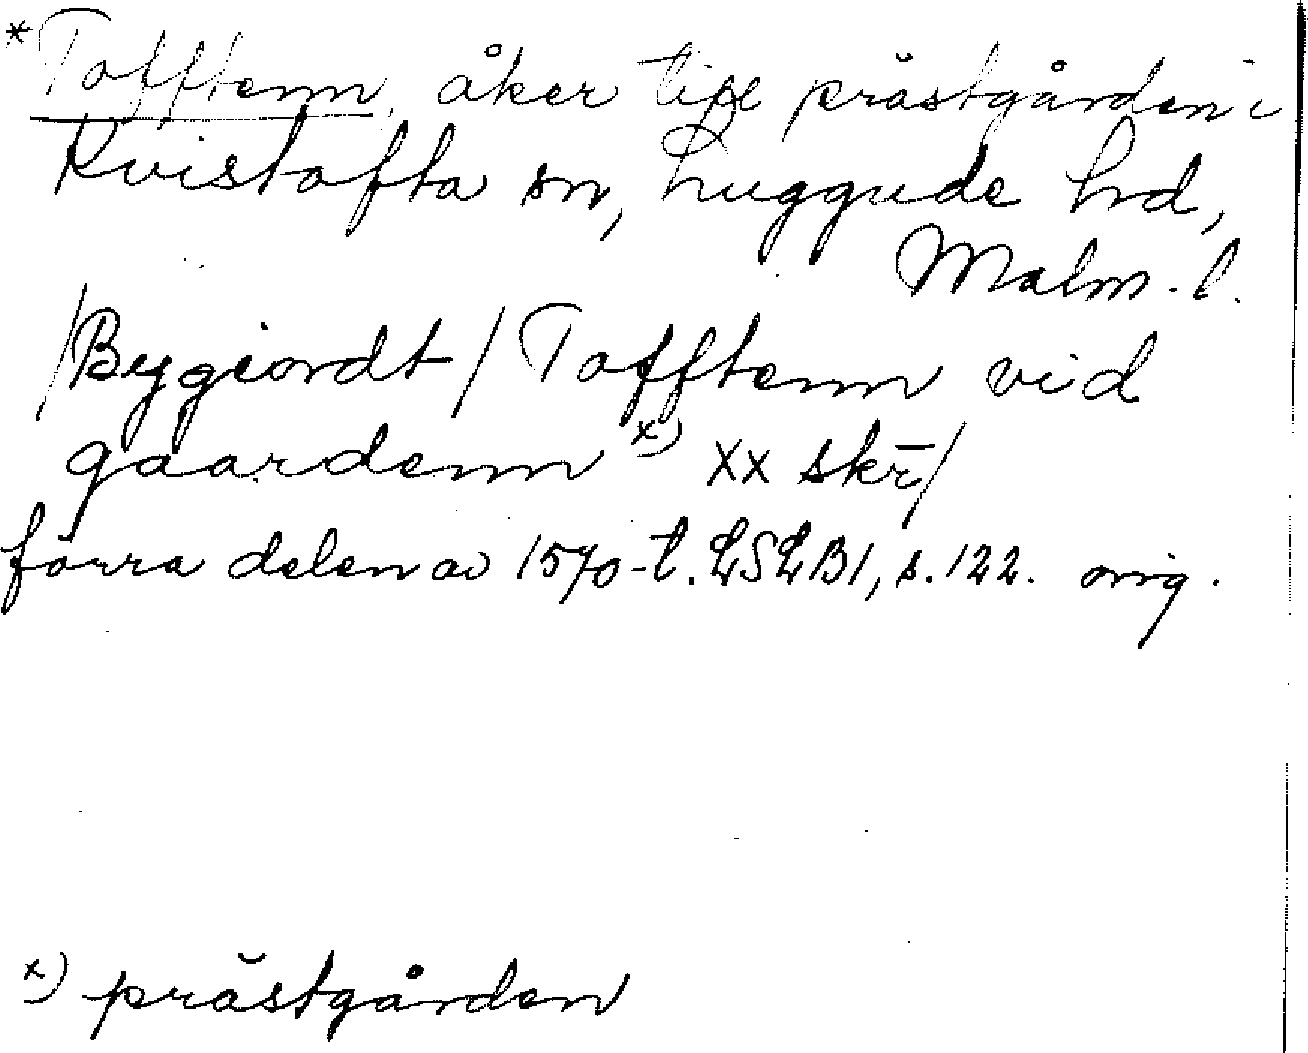 *Tofftenn, åker till prästgården i
Kvistofta sn, Luggude hd,
Malm. l.
/Bygiordt/ Tofftenn vid
gaardenn x) xx skr̄/
förra delen av 1570-t. LSLB1, s. 122. orig.
x) prästgården